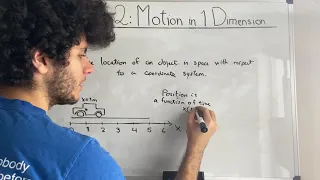 2: Motion in 1 Dimension
location of an object in space with respect
to a coordinate system.
Position is
a function of time
0 1 2 3 4 5 6 X
obody
before